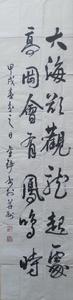 大海欲觀龍起處
高岡會有鳳鳴時
甲戌